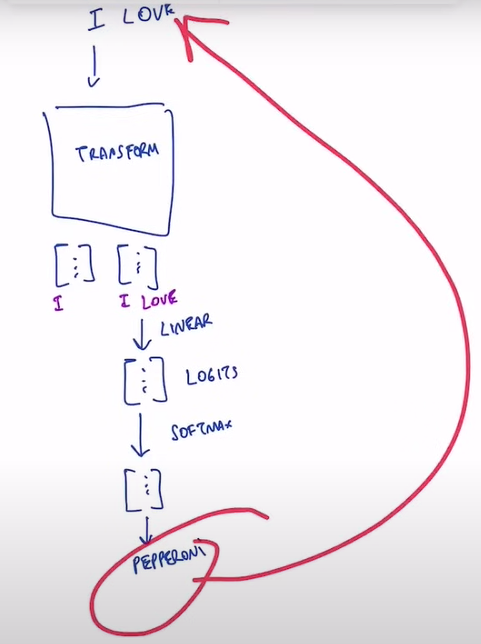 I LOVE
TRANSFORM
I
I LOVE
LINEAR
LOGITS
SOFTMAX
PEPPERONI